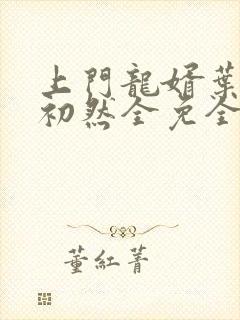 上門龍婿葉
初然全免全
董紅菁